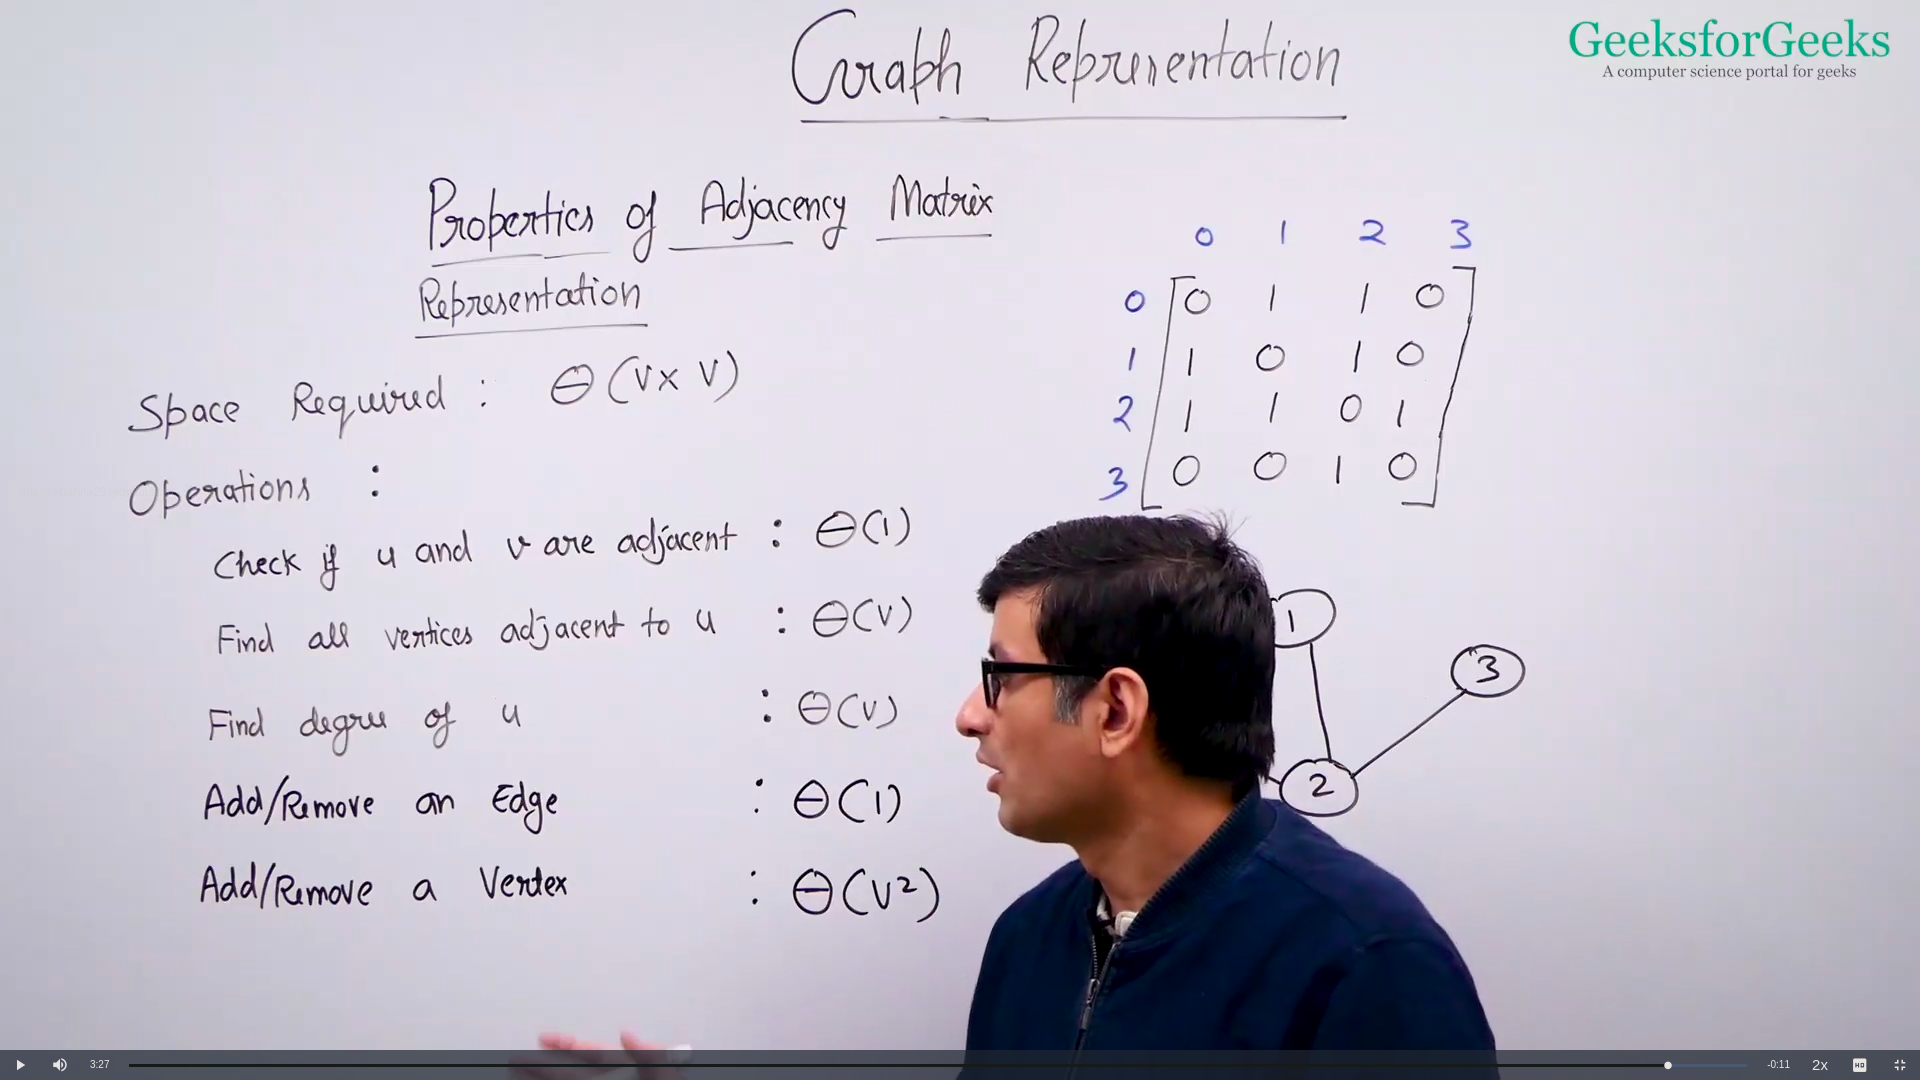 Graph Representation
GeeksforGeeks
A computer science portal for geeks
Properties of Adjacency Matrix
Representation
Space Required : Θ(V x V)
Operations :
Check if u and v are adjacent : Θ(1)
Find all vertices adjacent to u : Θ(V)
Find degree of u : Θ(V)
Add/Remove an Edge : Θ(1)
Add/Remove a Vertex : Θ(V²)
0 1 2 3
0 [0 1 1 0]
1 1 0 1 0
2 1 1 0 1
3 0 0 1 0
1
3
2
3:27
-0:11
2x
HD